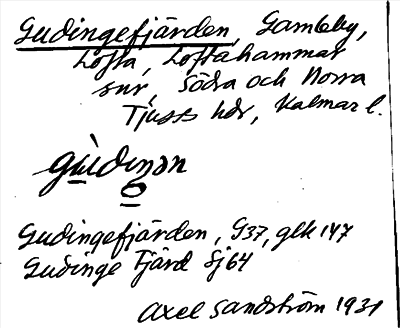 Gudingefjärden, Gamleby,
Lofta, Loftahammar
snr, Södra och Norra
Tjusts hdr, Kalmar l.
gùdiŋən
Gudingefjärden, G37, glk 147
Gudinge Fjärd Sj64
Axel Sandström 1931